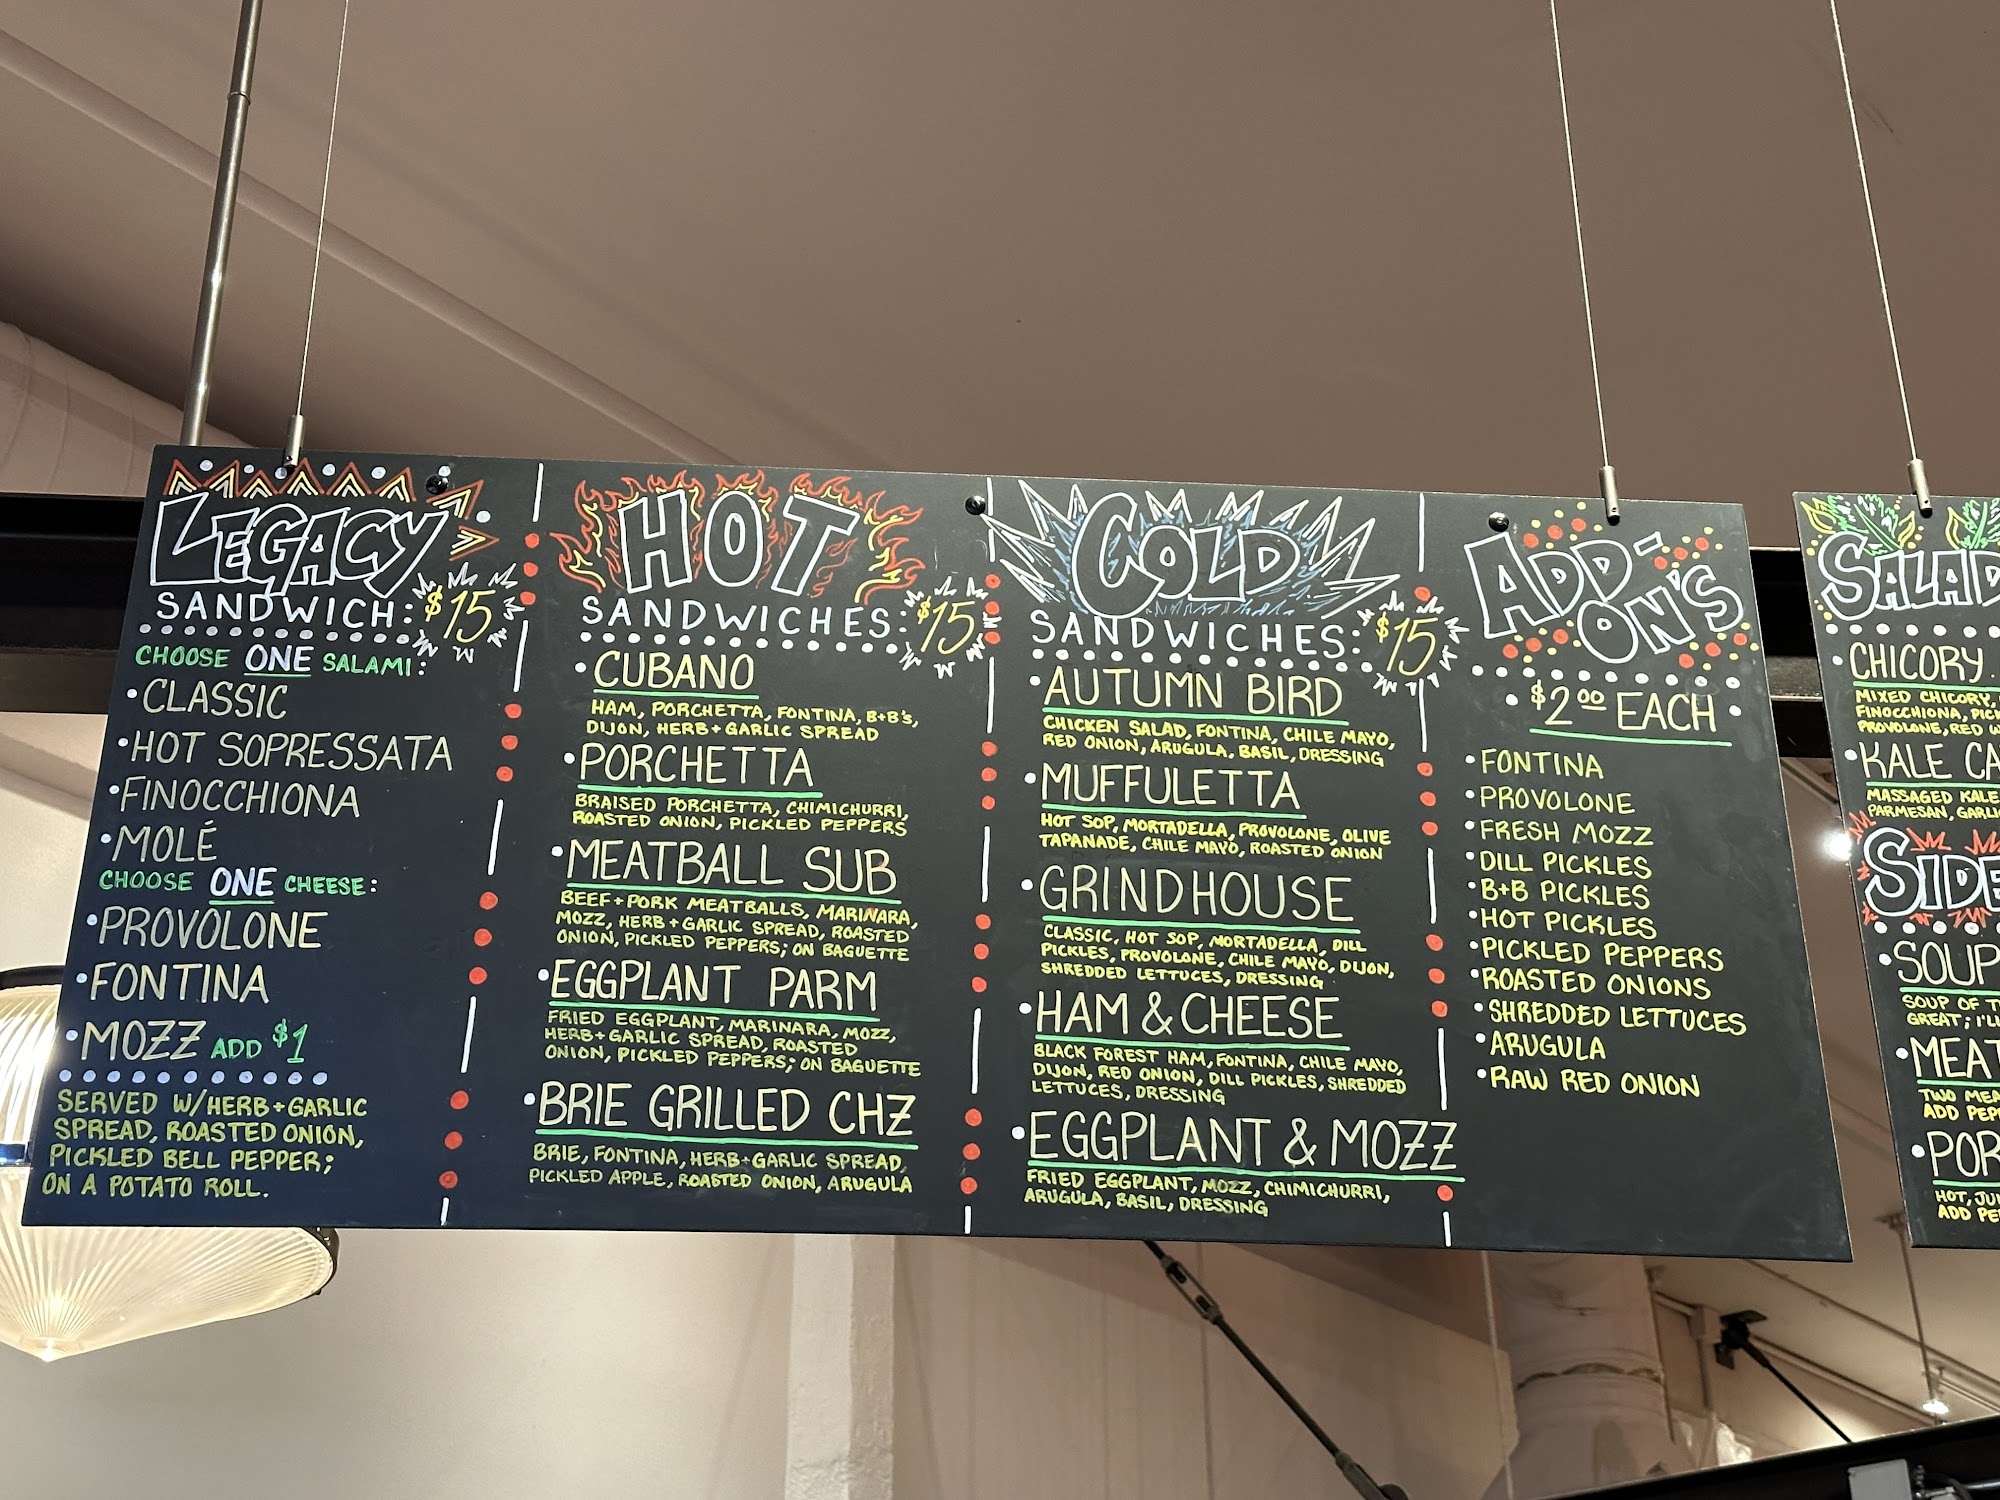 LEGACY
SANDWICH: $15
CHOOSE ONE SALAMI:
•CLASSIC
•HOT SOPRESSATA
•FINOCCHIONA
•MOLÉ
CHOOSE ONE CHEESE:
•PROVOLONE
•FONTINA
•MOZZ ADD $1
SERVED W/HERB+GARLIC
SPREAD, ROASTED ONION,
PICKLED BELL PEPPER;
ON A POTATO ROLL.
HOT
SANDWICHES: $15
•CUBANO
HAM, PORCHETTA, FONTINA, B+B's,
DIJON, HERB+GARLIC SPREAD
•PORCHETTA
BRAISED PORCHETTA, CHIMICHURRI,
ROASTED ONION, PICKLED PEPPERS
•MEATBALL SUB
BEEF+PORK MEATBALLS, MARINARA,
MOZZ, HERB+GARLIC SPREAD, ROASTED
ONION, PICKLED PEPPERS; ON BAGUETTE
•EGGPLANT PARM
FRIED EGGPLANT, MARINARA, MOZZ,
HERB+GARLIC SPREAD, ROASTED
ONION, PICKLED PEPPERS; ON BAGUETTE
•BRIE GRILLED CHZ
BRIE, FONTINA, HERB+GARLIC SPREAD,
PICKLED APPLE, ROASTED ONION, ARUGULA
COLD
SANDWICHES: $15
•AUTUMN BIRD
CHICKEN SALAD, FONTINA, CHILE MAYO,
RED ONION, ARUGULA, BASIL, DRESSING
•MUFFULETTA
HOT SOP, MORTADELLA, PROVOLONE, OLIVE
TAPANADE, CHILE MAYO, ROASTED ONION
•GRINDHOUSE
CLASSIC, HOT SOP, MORTADELLA, DILL
PICKLES, PROVOLONE, CHILE MAYO, DIJON,
SHREDDED LETTUCES, DRESSING
•HAM & CHEESE
BLACK FOREST HAM, FONTINA, CHILE MAYO,
DIJON, RED ONION, DILL PICKLES, SHREDDED
LETTUCES, DRESSING
•EGGPLANT & MOZZ
FRIED EGGPLANT, MOZZ, CHIMICHURRI,
ARUGULA, BASIL, DRESSING
ADD-
ON'S
•$2.00 EACH•
•FONTINA
•PROVOLONE
•FRESH MOZZ
•DILL PICKLES
•B+B PICKLES
•HOT PICKLES
•PICKLED PEPPERS
•ROASTED ONIONS
•SHREDDED LETTUCES
•ARUGULA
•RAW RED ONION
SALAD
•CHICORY
MIXED CHICORY,
FINOCCHIONA,
PROVOLONE, RED
•KALE
MASSAGED KALE
PARMESAN,
SIDE
•SOUP
SOUP OF
GREAT;
•MEAT
TWO
ADD
•POR
HOT,
ADD